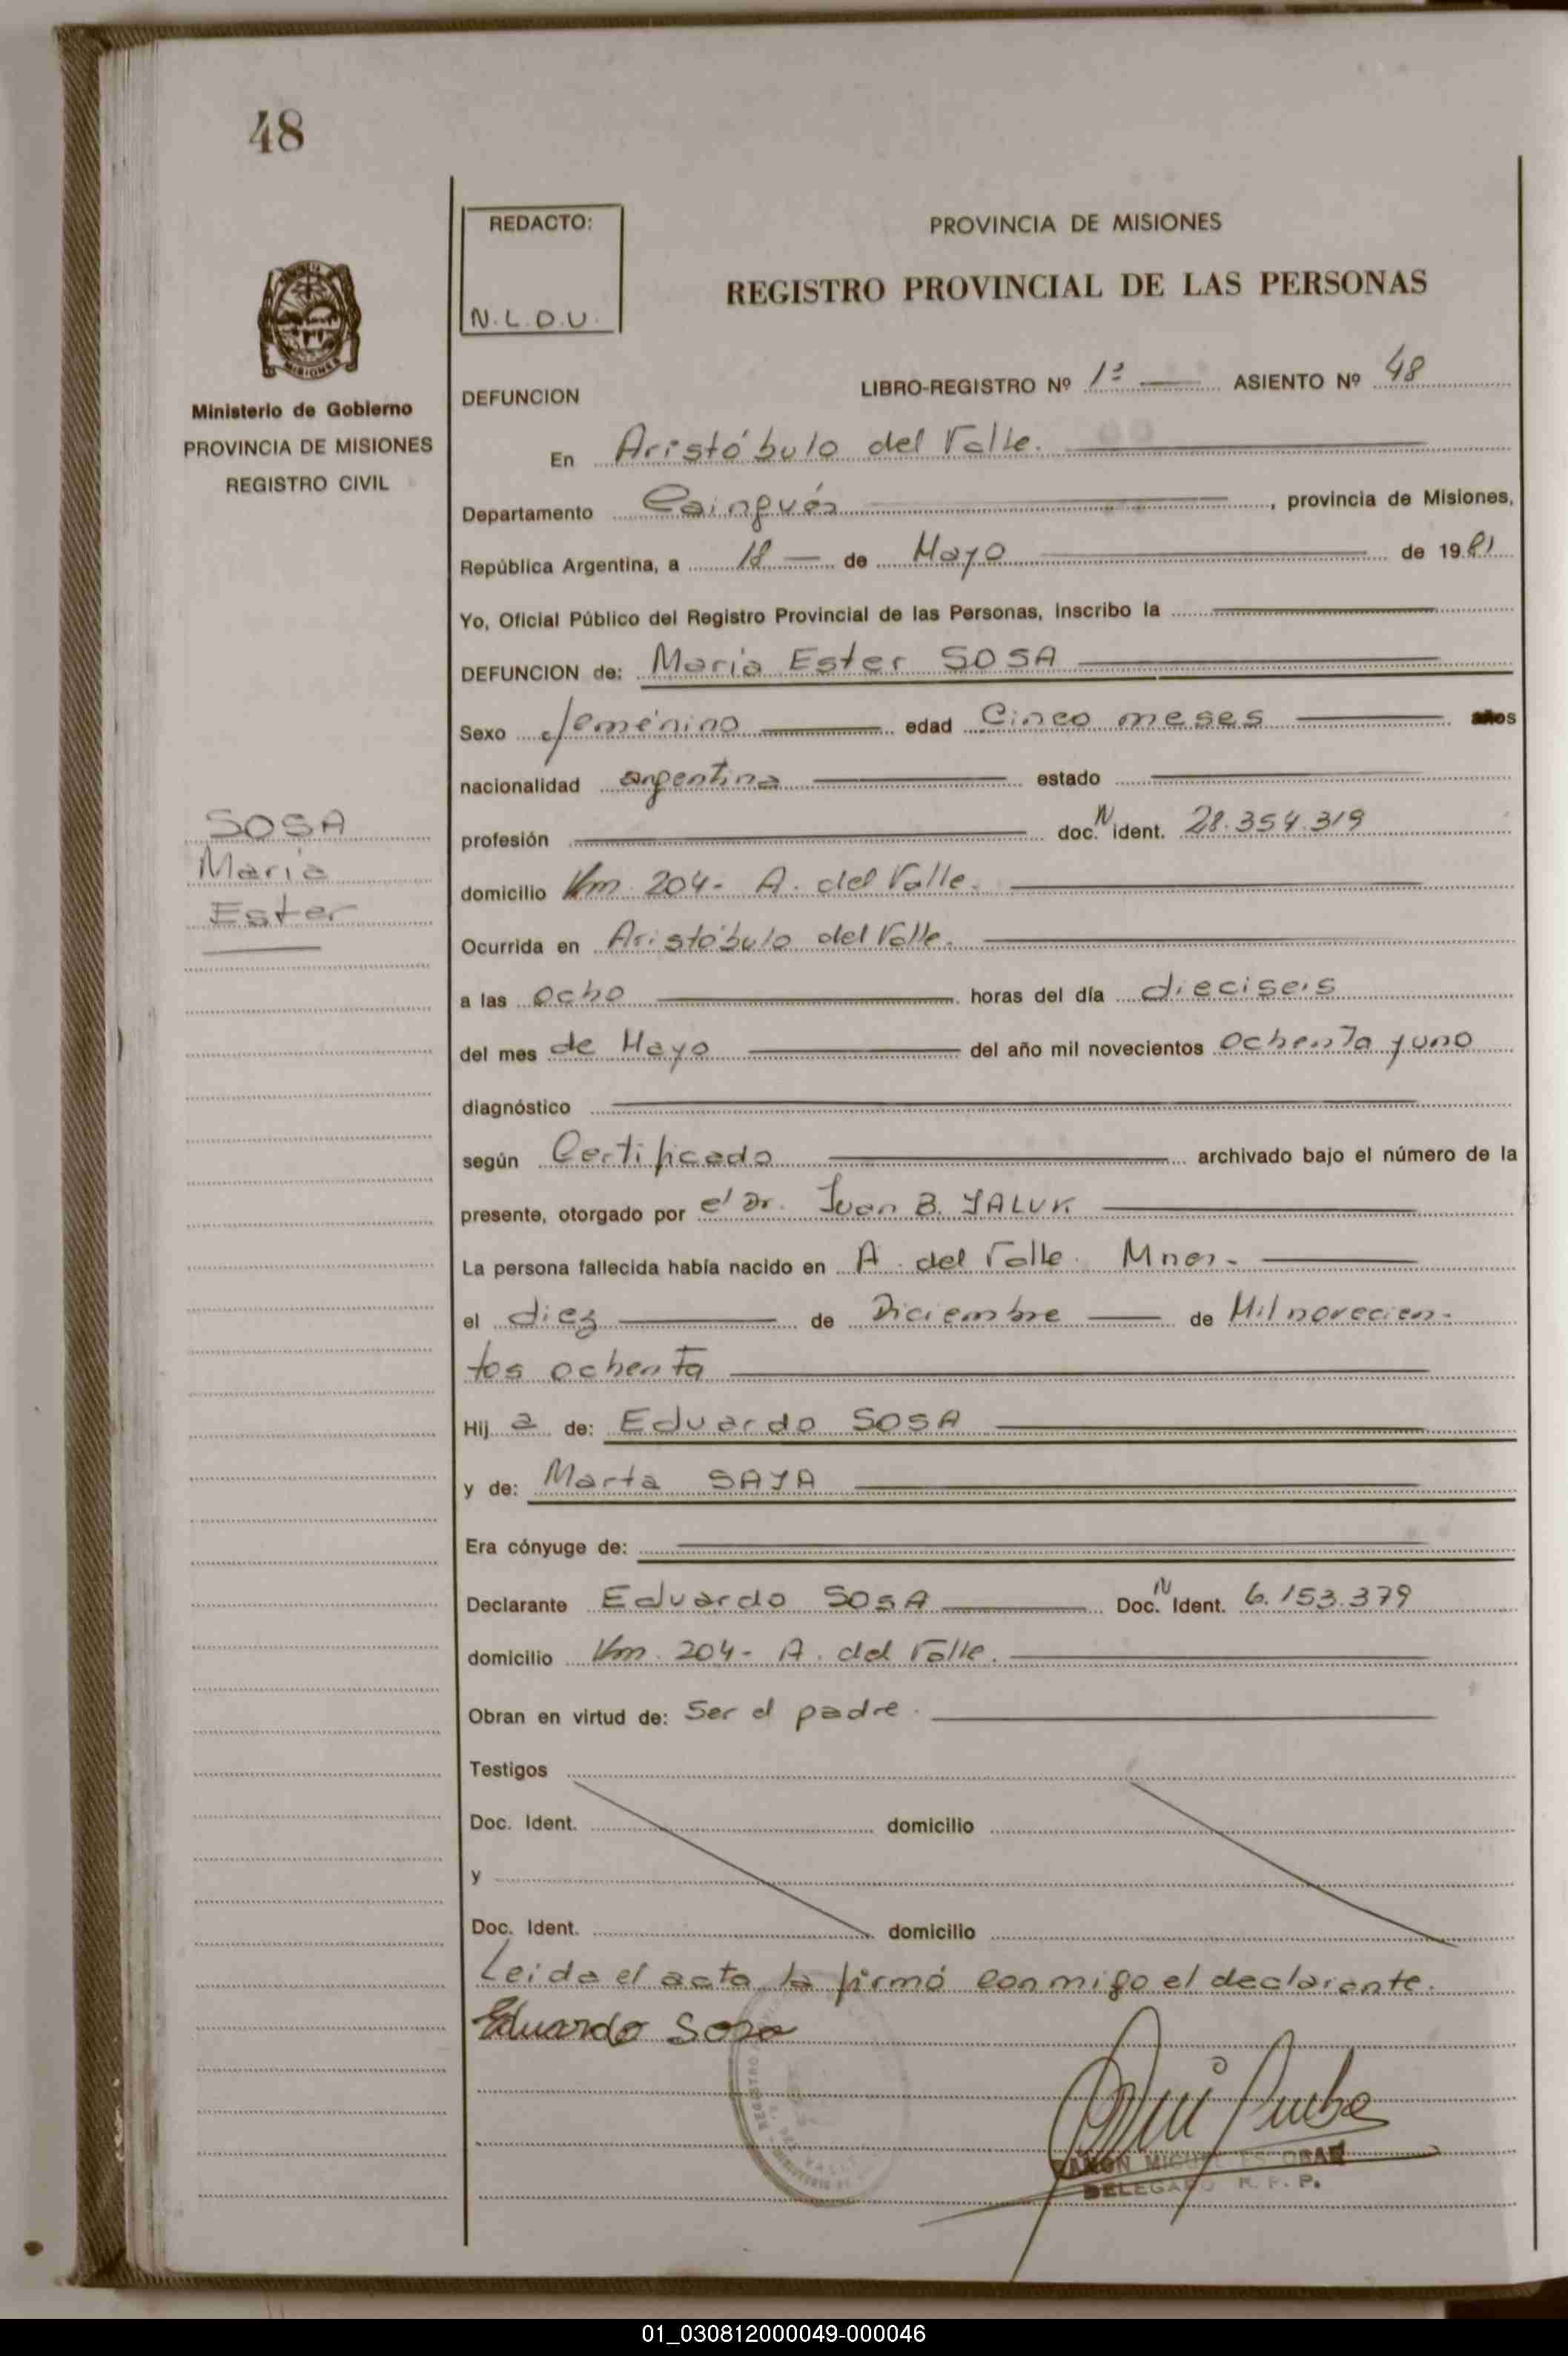 48
REDACTO:
N.L.D.U.
PROVINCIA DE MISIONES
REGISTRO PROVINCIAL DE LAS PERSONAS
MISIONES
Ministerio de Gobierno
PROVINCIA DE MISIONES
REGISTRO CIVIL
DEFUNCION LIBRO-REGISTRO Nº 1º ASIENTO Nº 48
En Aristóbulo del Valle.
Departamento Cainguás, provincia de Misiones,
República Argentina, a 18 de Mayo de 1981
Yo, Oficial Público del Registro Provincial de las Personas, inscribo la
DEFUNCION de: María Ester SOSA
Sexo femenino edad Cinco meses años
nacionalidad argentina estado
profesión doc. N ident. 28.354.319
domicilio Km 204- A. del Valle.
Ocurrida en Aristóbulo del Valle.
a las ocho horas del día dieciseis
del mes de Mayo del año mil novecientos ochenta y uno
diagnóstico
según Certificado archivado bajo el número de la
presente, otorgado por el Dr. Juan B. YALUK
La persona fallecida había nacido en A. del Valle. Mnes.
el diez de Diciembre de Mil novecien-
tos ochenta
Hij a de: Eduardo SOSA
y de: Marta SAYA
Era cónyuge de:
Declarante Eduardo SOSA Doc. N Ident. 6.153.379
domicilio Km. 204- A. del Valle.
Obran en virtud de: Ser el padre.
Testigos
Doc. Ident. domicilio
y
Doc. Ident. domicilio
Leida el acta la firmó conmigo el declarante.
Eduardo Sosa
RAMON MIGUEL
DELEGADO R. P. P.
SOSA
María
Ester
01_030812000049-000046